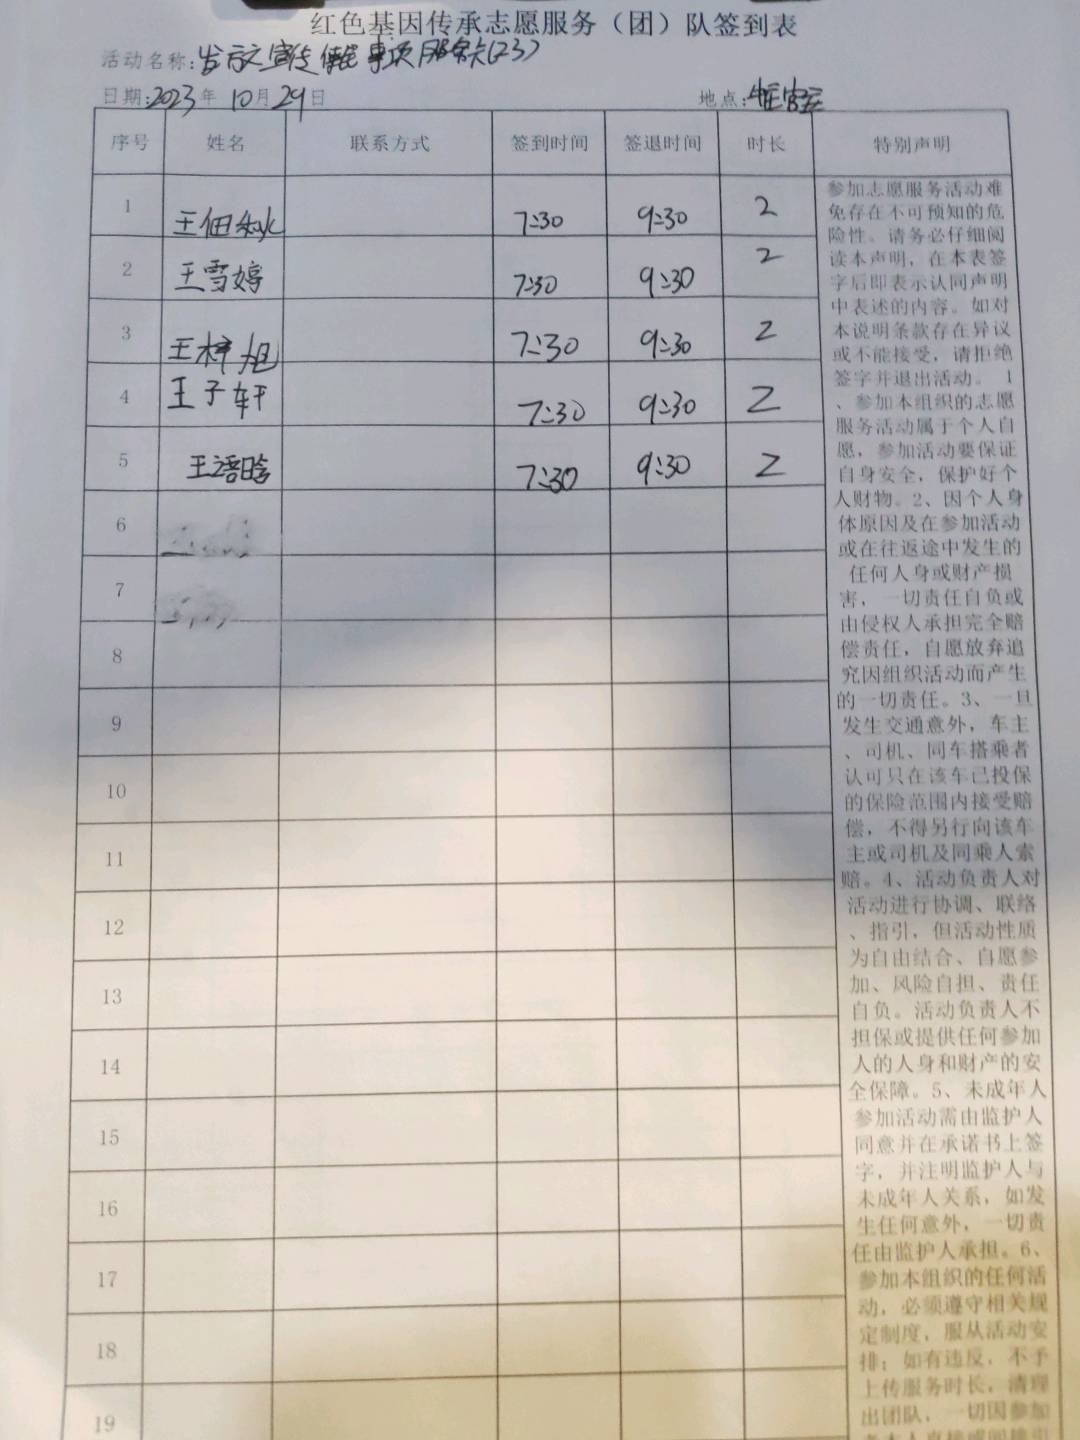 红色基因传承志愿服务（团）队签到表
活动名称:发文宣传 事项服务卡(23)
日期:2023年10月29日 地点:
序号 姓名 联系方式 签到时间 签退时间 时长 特别声明
1 王佃秋 7:30 9:30 2
2 王雪婷 7:30 9:30 2
3 王梓旭 7:30 9:30 2
4 王子轩 7:30 9:30 2
5 王语晗 7:30 9:30 2
6
7
8
9
10
11
12
13
14
15
16
17
18
19
参加志愿服务活动难
免存在不可预知的危
险性。请务必仔细阅
读本声明，在本表签
字后即表示认同声明
中表述的内容。如对
本说明条款存在异议
或不能接受，请拒绝
签字并退出活动。 1
、参加本组织的志愿
服务活动属于个人自
愿，参加活动要保证
自身安全，保护好个
人财物。2、因个人身
体原因及在参加活动
或在往返途中发生的
任何人身或财产损
害，一切责任自负或
由侵权人承担完全赔
偿责任，自愿放弃追
究因组织活动而产生
的一切责任。3、一旦
发生交通意外，车主
、司机、同车搭乘者
认可只在该车已投保
的保险范围内接受赔
偿，不得另行向该车
主或司机及同乘人索
赔。4、活动负责人对
活动进行协调、联络
、指引，但活动性质
为自由结合、自愿参
加、风险自担、责任
自负。活动负责人不
担保或提供任何参加
人的人身和财产的安
全保障。5、未成年人
参加活动需由监护人
同意并在承诺书上签
字，并注明监护人与
未成年人关系，如发
生任何意外，一切责
任由监护人承担。6、
参加本组织的任何活
动，必须遵守相关规
定制度，服从活动安
排；如有违反，不予
上传服务时长，清理
出团队，一切因参加